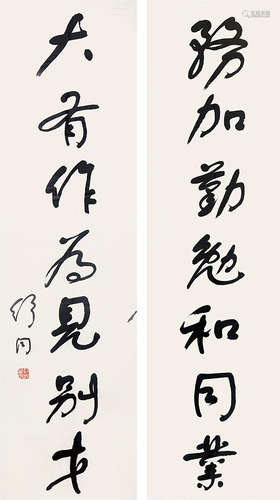 務加勤勉和同業
大有作為見別才
舒同